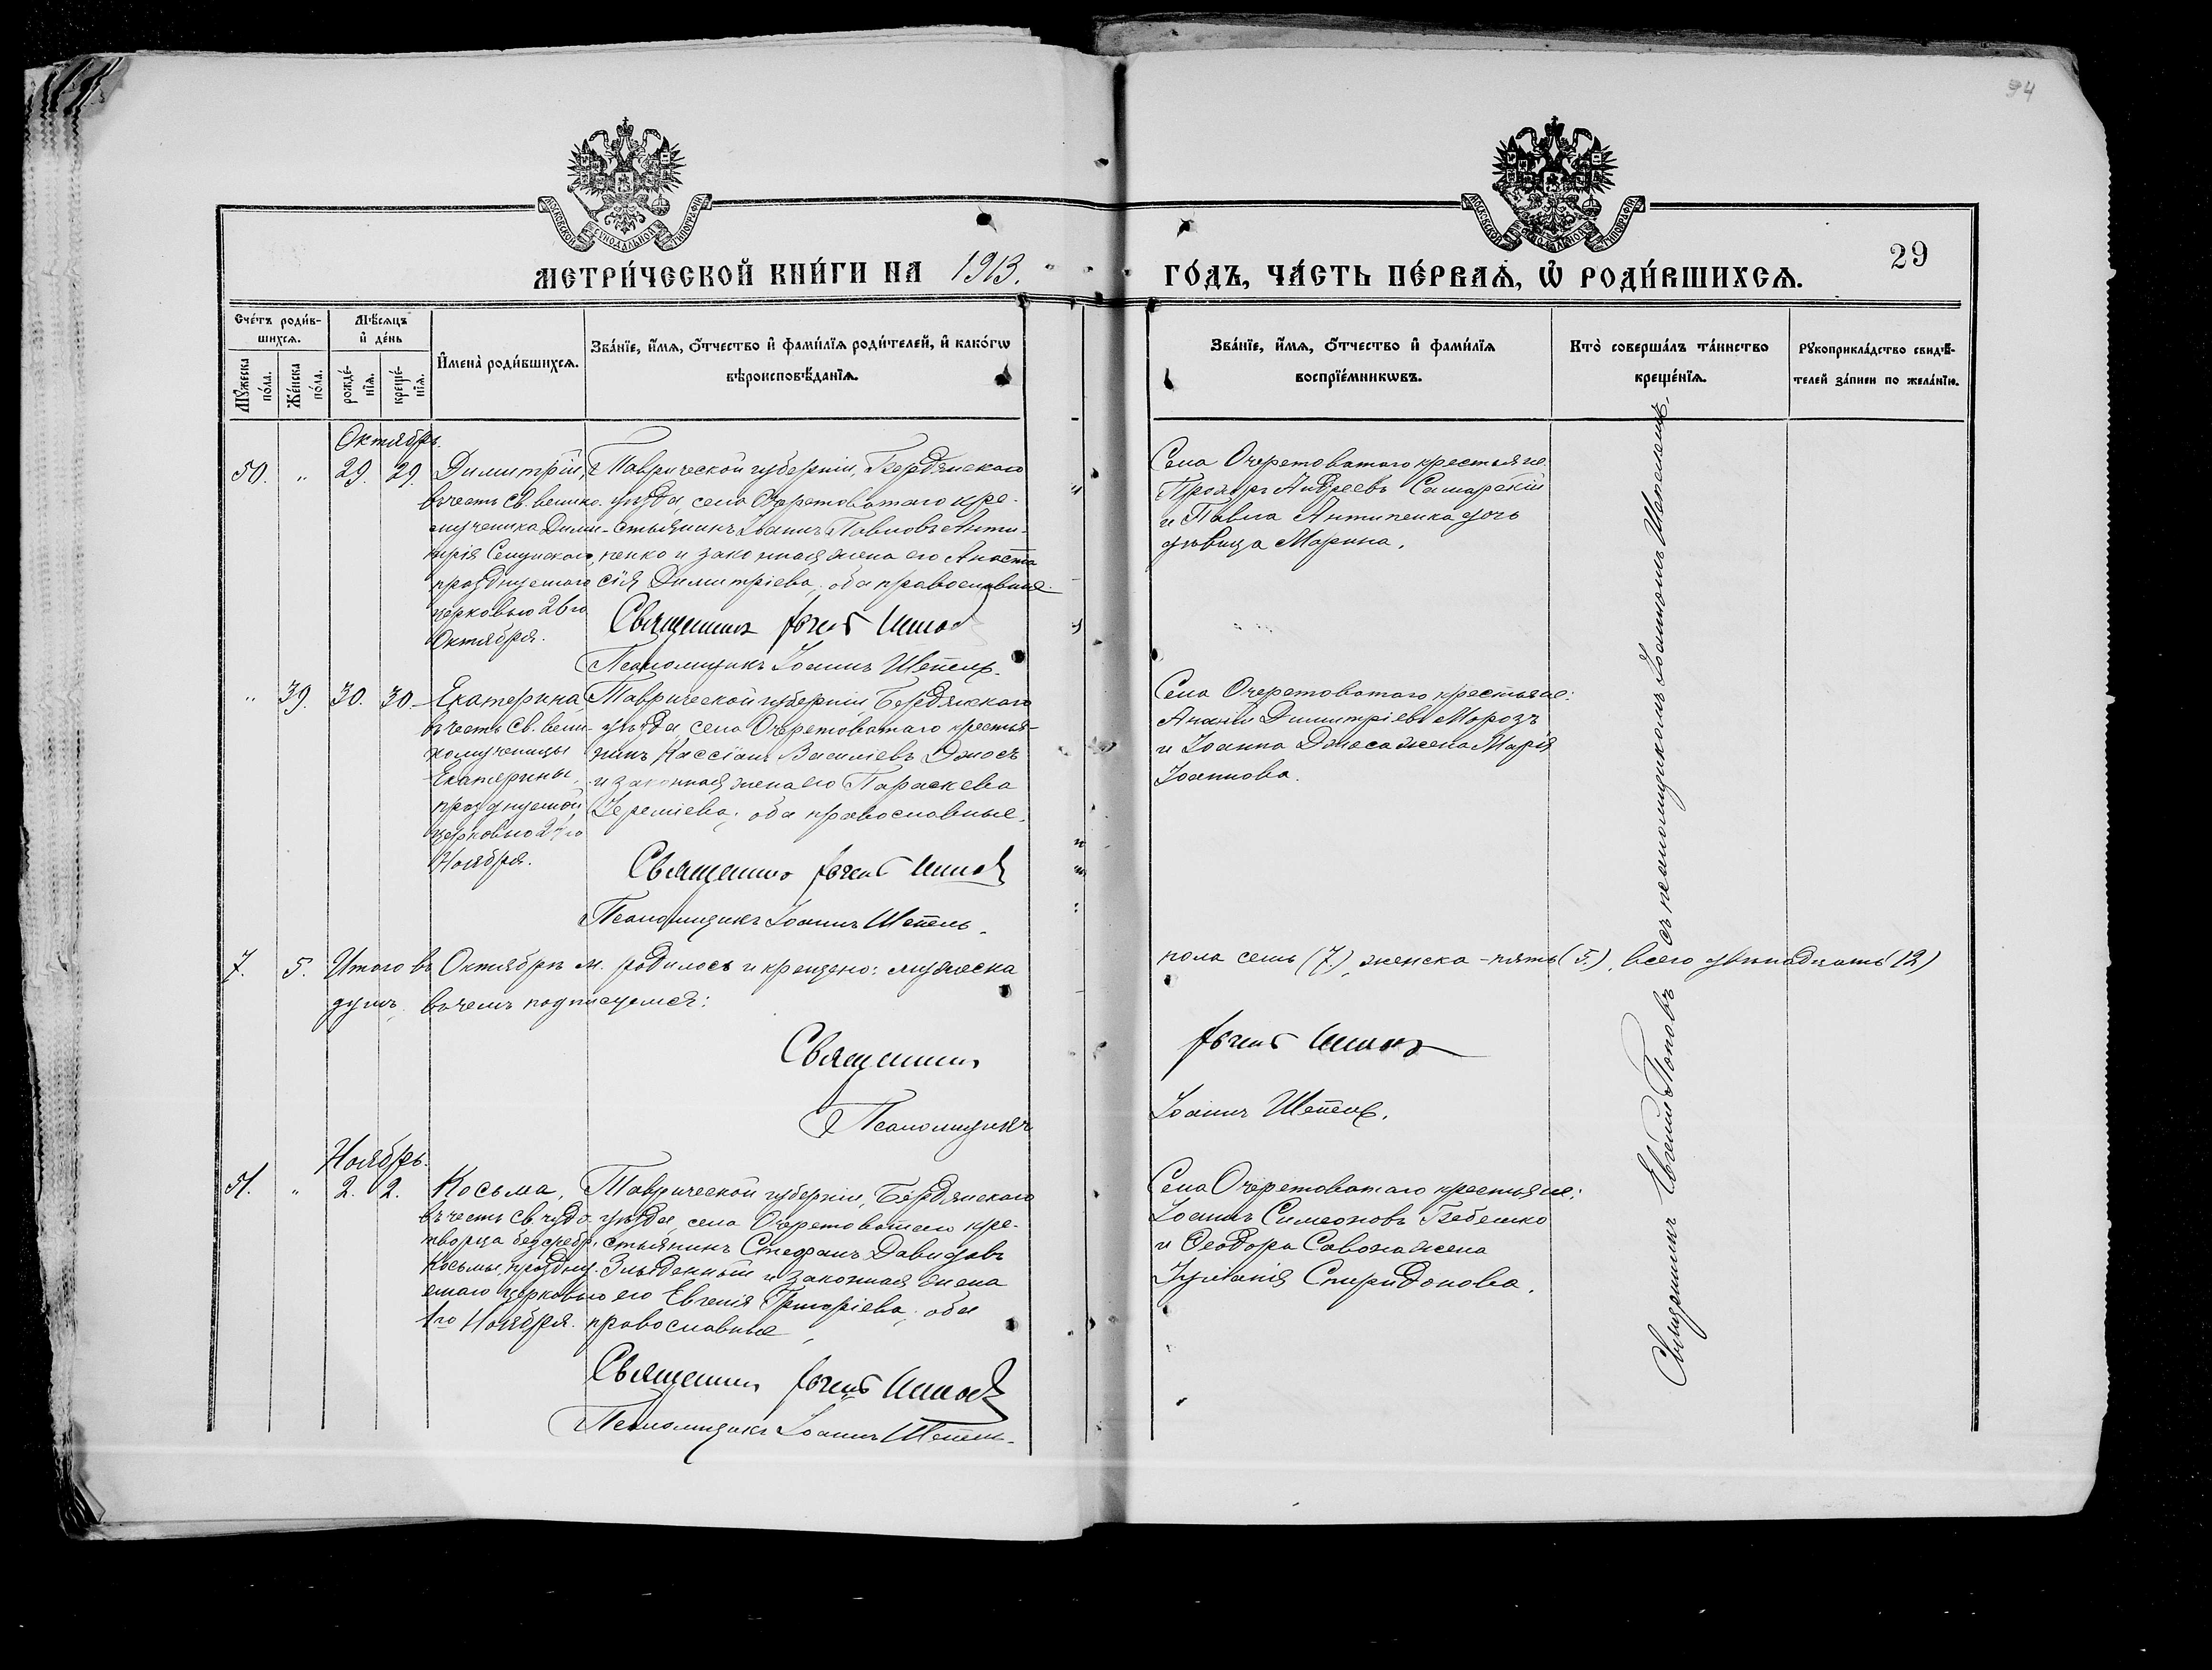 94
МОСКОВСКОЙ СУНОДАЛЬНОЙ ТИПОГРАФІИ
МОСКОВСКОЙ СУНОДАЛЬНОЙ ТИПОГРАФІИ
29
МЕТРИ́ЧЕСКОЙ КНИ́ГИ НА 1913.
ГО́ДЪ, ЧА́СТЬ ПЕ́РВАѦ, Ѡ РОДИ́ВШИХСѦ.
Сче́тъ роди́в-
шихсѧ.
Мꙋ́жеска
по́ла.
Же́нска
по́ла.
Мѣ́сѧцъ
и҆ де́нь
рожде́-
нїѧ.
креще́-
нїѧ.
И҆мена̀ роди́вшихсѧ.
Зва́нїе, и҆́мѧ, ѻ҆́тчество и҆ фами́лїѧ роди́телей, и҆ како́гѡ
вѣроисповѣ́данїѧ.
Зва́нїе, и҆́мѧ, ѻ҆́тчество и҆ фами́лїѧ
воспрїе́мникѡвъ.
Кто̀ соверша́лъ та́инство
креще́нїѧ.
Рꙋкоприкла́дство свидѣ́-
телей за́писи по жела́нїю.
Октябрь.
50. „ 29. 29.
Димитрій,
въ честь св. велико-
мученика Дими-
трія Солунскаго,
празднуемаго
церковью 26го
Октября.
Таврической губерніи, Бердянскаго
уѣзда, села Очеретоватаго кре-
стьянинъ Іоаннъ Павловъ Анти-
пенко и законная жена его Анаста
сія Димитріева, оба православные.
Священникъ Евгеній Поповъ
Псаломщикъ Іоаннъ Шепель.
Села Очеретоватаго крестьяне:
Прохоръ Андреевъ Самарскій
и Павла Антипенка дочь
дѣвица Марина.
„ 39. 30. 30.
Екатерина,
въ честь св. вели-
комученицы
Екатерины,
празднуемой
церковью 24го
Ноября.
Таврической губерніи, Бердянскаго
уѣзда, села Очеретоватаго крестья-
нинъ Кассіанъ Василіевъ
и законная жена его Параскева
Іереміева, оба православные.
Священникъ Евгеній Поповъ
Псаломщикъ Іоаннъ Шепель.
Села Очеретоватаго крестьяне:
Димитріевъ Морозъ
и Іоанна жена Марія
Іоаннова.
7. 5. Итого въ Октябрѣ м. родилось и крещено: мужеска
пола семь (7), женска - пять (5), всего двѣнадцать (12)
душъ, въ чемъ подписуемся:
Священникъ
Евгеній Поповъ
Псаломщикъ
Іоаннъ Шепель.
Ноябрь.
51. „ 2. 2.
Косьма,
въ честь св. чудо-
творца безсребр.
Косьмы, праздну-
емаго церковью
1го Ноября.
Таврической губерніи, Бердянскаго
уѣзда, села Очеретоватаго кре-
стьянинъ Стефанъ Давидовъ
и законная жена
его Евгенія Григоріева, оба
православные
Священникъ Евгеній Поповъ
Псаломщикъ Іоаннъ Шепель.
Села Очеретоватаго крестьяне:
Іоаннъ Симеоновъ Бебешко
и Ѳеодора Савохи жена
Іуліанія Спиридонова.
Священникъ Евгеній Поповъ съ псаломщикомъ Іоанномъ Шепелемъ.